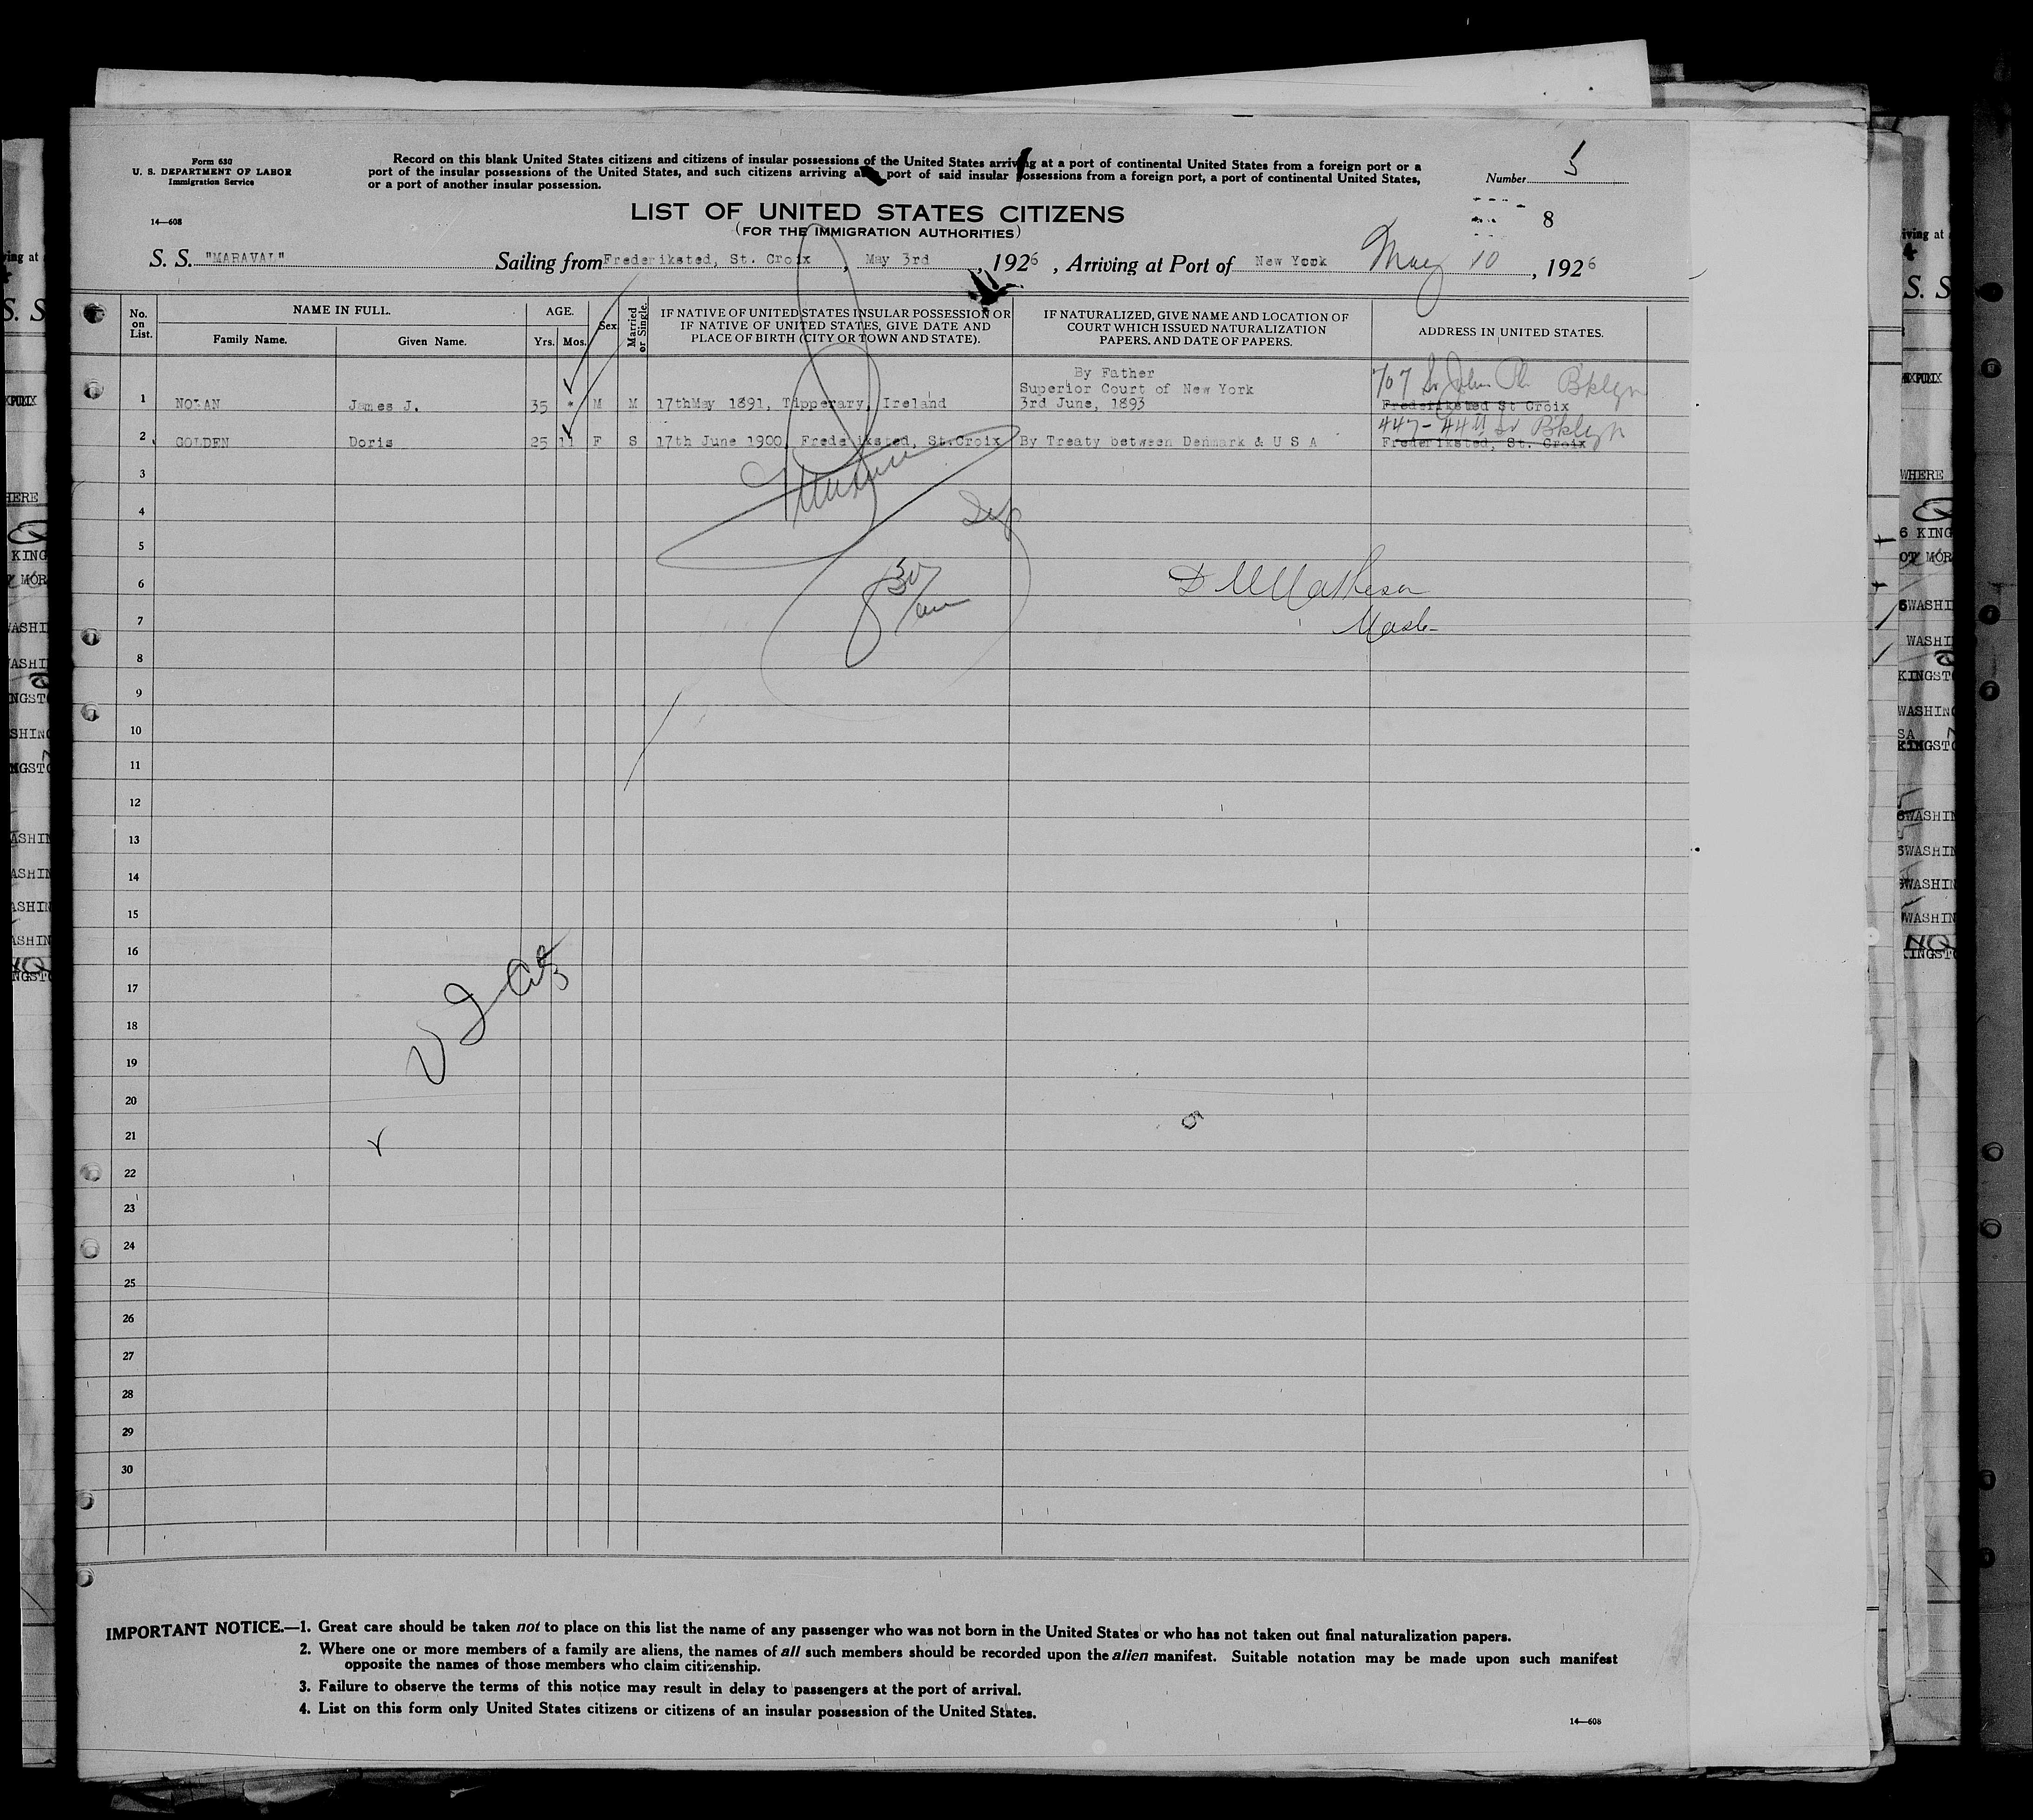 Form 630
U. S. DEPARTMENT OF LABOR
Immigration Service
14—608
Record on this blank United States citizens and citizens of insular possessions of the United States arriving at a port of continental United States from a foreign port or a
port of the insular possessions of the United States, and such citizens arriving at port of said insular possessions from a foreign port, a port of continental United States,
or a port of another insular possession.
Number 5
8
LIST OF UNITED STATES CITIZENS
(FOR THE IMMIGRATION AUTHORITIES)
S. S. "MARAVAL" Sailing from Frederiksted, St. Croix, May 3rd, 1926, Arriving at Port of New York May 10, 1926
No. on List.
NAME IN FULL.
Family Name.
Given Name.
AGE.
Yrs. Mos.
Sex.
Married or Single.
IF NATIVE OF UNITED STATES INSULAR POSSESSION OR
IF NATIVE OF UNITED STATES, GIVE DATE AND
PLACE OF BIRTH (CITY OR TOWN AND STATE).
IF NATURALIZED, GIVE NAME AND LOCATION OF
COURT WHICH ISSUED NATURALIZATION
PAPERS, AND DATE OF PAPERS.
ADDRESS IN UNITED STATES.
By Father
Superior Court of New York
707 St John Pl Bklyn
1 NOLAN James J. 35 M M 17thMay 1891, Tipperary, Ireland 3rd June, 1893 Frederiksted St Croix
447-44th St Bklyn
2 GOLDEN Doris 25 11 F S 17th June 1900, Frederiksted, St.Croix By Treaty between Denmark & U S A Frederiksted, St. Croix
3
4
5
6
7
8
9
10
11
12
13
14
15
16
17
18
19
20
21
22
23
24
25
26
27
28
29
30
8 30/am
D M Matheson
IMPORTANT NOTICE.—1. Great care should be taken not to place on this list the name of any passenger who was not born in the United States or who has not taken out final naturalization papers.
2. Where one or more members of a family are aliens, the names of all such members should be recorded upon the alien manifest. Suitable notation may be made upon such manifest
opposite the names of those members who claim citizenship.
3. Failure to observe the terms of this notice may result in delay to passengers at the port of arrival.
4. List on this form only United States citizens or citizens of an insular possession of the United States.
14—608